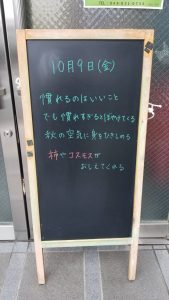 10月9日(金)
慣れるのはいいこと
でも慣れすぎるとぼやけてくる
秋の空気に身をひきしめる
柿やコスモスが
おしえてくれる